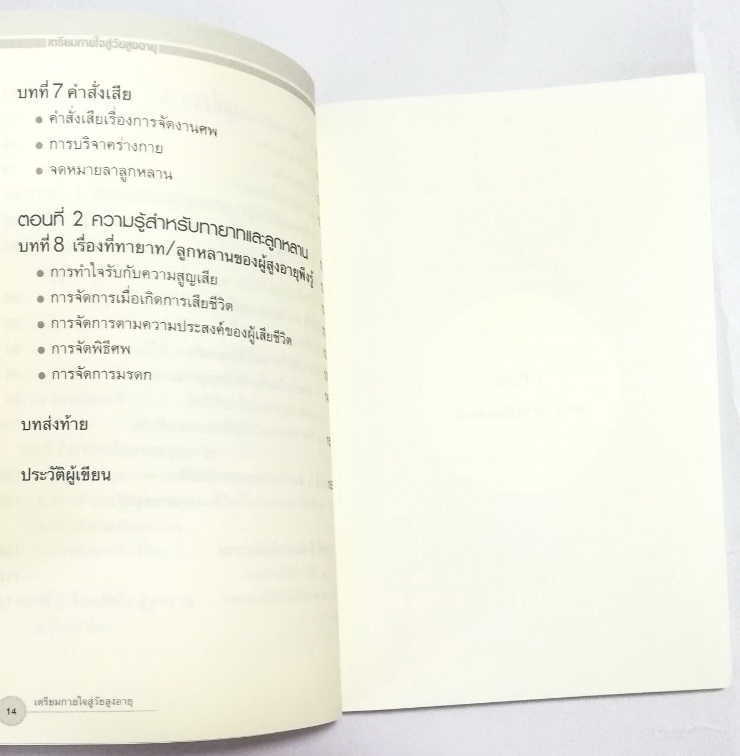 เตรียมกายใจสู่วัยสูงอายุ
บทที่ 7 คำสั่งเสีย
● คำสั่งเสียเรื่องการจัดงานศพ
● การบริจาคร่างกาย
● จดหมายลาลูกหลาน
ตอนที่ 2 ความรู้สำหรับทายาทและลูกหลาน
บทที่ 8 เรื่องที่ทายาท/ลูกหลานของผู้สูงอายุพึงรู้
● การทำใจรับกับความสูญเสีย
● การจัดการเมื่อเกิดการเสียชีวิต
● การจัดการตามความประสงค์ของผู้เสียชีวิต
● การจัดพิธีศพ
● การจัดการมรดก
บทส่งท้าย
ประวัติผู้เขียน
14 เตรียมกายใจสู่วัยสูงอายุ